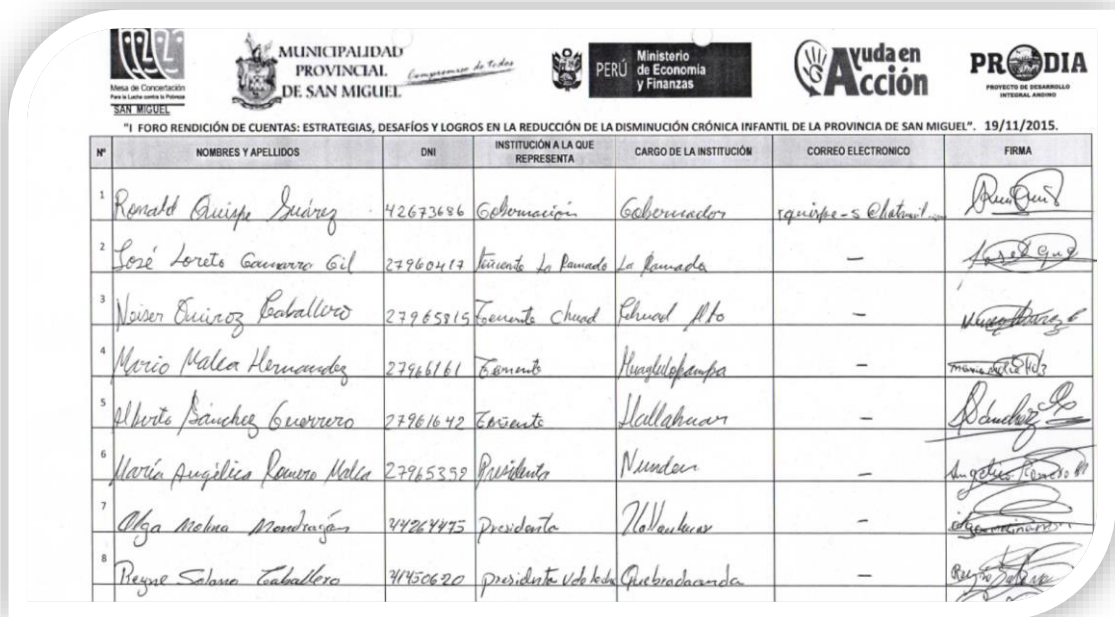 Mesa de Concertación
Para la Lucha contra la Pobreza
SAN MIGUEL
MUNICIPALIDAD
PROVINCIAL
DE SAN MIGUEL
Compromiso de todos
PERÚ
Ministerio
de Economía
y Finanzas
Ayuda en
Acción
PRODIA
PROYECTO DE DESARROLLO
INTEGRAL ANDINO
"I FORO RENDICIÓN DE CUENTAS: ESTRATEGIAS, DESAFÍOS Y LOGROS EN LA REDUCCIÓN DE LA DISMINUCIÓN CRÓNICA INFANTIL DE LA PROVINCIA DE SAN MIGUEL". 19/11/2015.
N° NOMBRES Y APELLIDOS DNI INSTITUCIÓN A LA QUE REPRESENTA CARGO DE LA INSTITUCIÓN CORREO ELECTRONICO FIRMA
1 Ronald Quispe Suárez 42673686 Gobernación Gobernador rquispe-s@hotmail
2 José Loreto Gamarra Gil 27960417 Teniente La Ramada La Ramada –
3 Neiser Quiroz Caballero 27965815 Teniente Chuad Chuad Alto –
4 Mario Malca Hernandez 27966161 Teniente –
5 Alberto Sánchez Guerrero 27961642 Teniente –
6 María Angélica Romero Malca 27965392 Presidenta –
7 Olga Molina Mondragón 44264475 Presidenta –
8 Reyne Solano Caballero 41450620 presidenta –